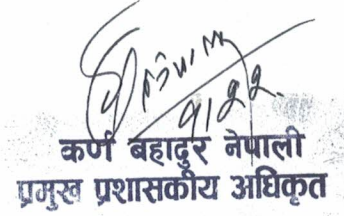 ९/२२
कर्ण बहादुर नेपाली
प्रमुख प्रशासकीय अधिकृत